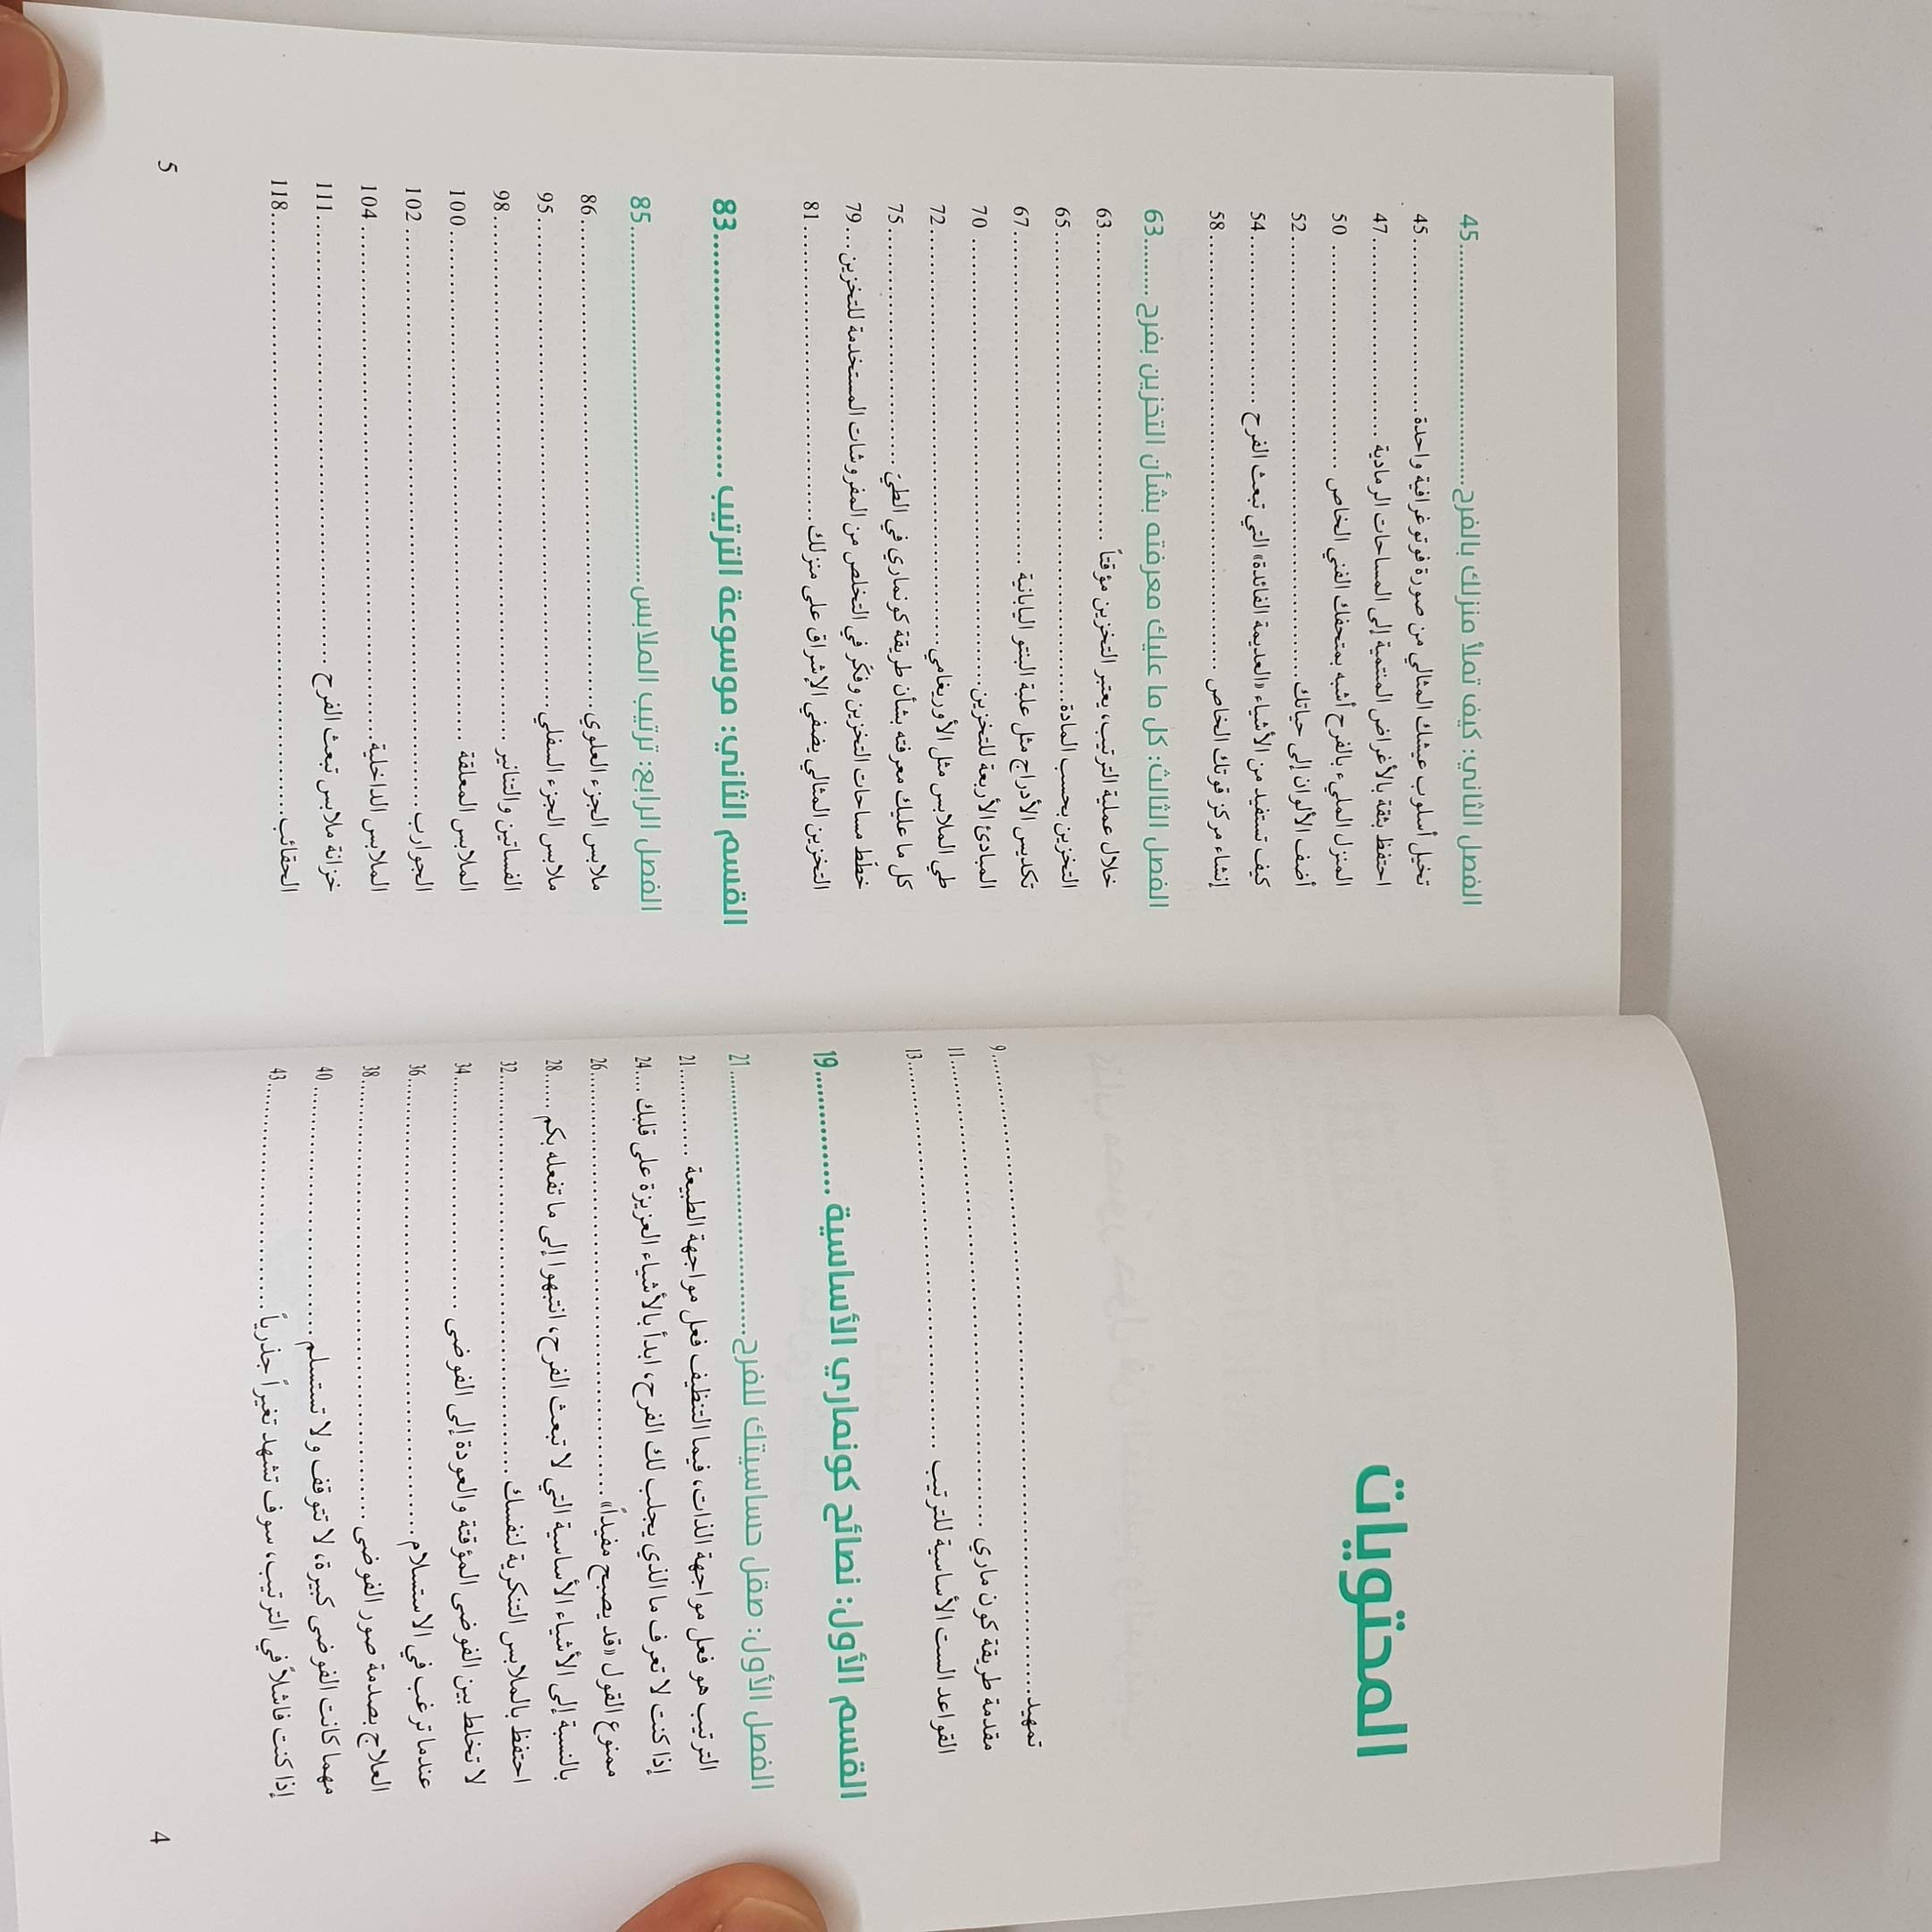 المحتويات
تمهيد....................................................9
مقدمة طريقة كون ماري....................................................11
القواعد الست الأساسية للترتيب....................................................13
القسم الأول: نصائح كونماري الأساسية............19
الفصل الأول: صقل حساسيتك للفرح..............................21
الترتيب هو فعل مواجهة الذات، فيما التنظيف فعل مواجهة الطبيعة..........21
إذا كنت لا تعرف ما الذي يجلب لك الفرح، ابدأ بالأشياء العزيزة على قلبك....24
ممنوع القول «قد يصبح مفيداً»..............................26
بالنسبة إلى الأشياء الأساسية التي لا تبعث الفرح، انتبهوا إلى ما تفعله بكم....28
احتفظ بالملابس التنكرية لنفسك..............................32
لا تخلط بين الفوضى المؤقتة والعودة إلى الفوضى....................34
عندما ترغب في الاستسلام..............................36
العلاج بصدمة صور الفوضى..............................38
مهما كانت الفوضى كبيرة، لا تتوقف ولا تستسلم....................40
إذا كنت فاشلاً في الترتيب، سوف تشهد تغيراً جذرياً....................43
4
الفصل الثاني: كيف تملأ منزلك بالفرح....................45
تخيل أسلوب عيشك المثالي من صورة فوتوغرافية واحدة...............45
احتفظ بثقة بالأغراض المنتمية إلى المساحات الرمادية...............47
المنزل المليء بالفرح أشبه بمتحفك الفني الخاص...............50
أضف الألوان إلى حياتك..............................52
كيف تستفيد من الأشياء «العديمة الفائدة» التي تبعث الفرح...............54
إنشاء مركز قوتك الخاص..............................58
الفصل الثالث: كل ما عليك معرفته بشأن التخزين بفرح......63
خلال عملية الترتيب، يعتبر التخزين مؤقتاً....................63
التخزين بحسب المادة..............................65
تكديس الأدراج مثل علبة البنتو اليابانية....................67
المبادئ الأربعة للتخزين..............................70
طي الملابس مثل الأوريغامي..............................72
كل ما عليك معرفته بشأن طريقة كونماري في الطيّ....................75
خطّط مساحات التخزين وفكّر في التخلص من المفروشات المستخدمة للتخزين....79
التخزين المثالي يضفي الإشراق على منزلك....................81
القسم الثاني: موسوعة الترتيب....................83
الفصل الرابع: ترتيب الملابس..............................85
ملابس الجزء العلوي..............................86
ملابس الجزء السفلي..............................95
الفساتين والتنانير..............................98
الملابس المعلقة..............................100
الجوارب..............................102
الملابس الداخلية..............................104
خزانة ملابس تبعث الفرح..............................111
الحقائب..............................118
5